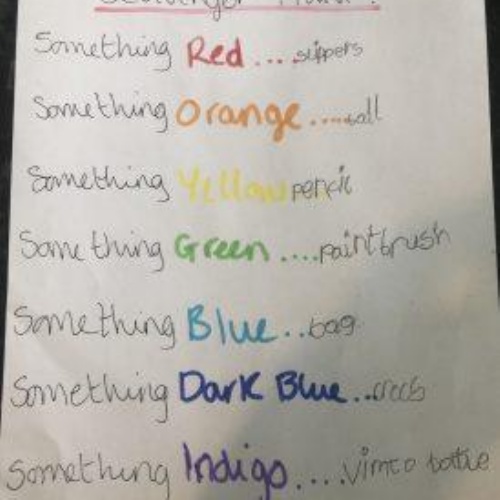 Scavenger Hunt!
Something Red....slippers
Something Orange.....ball
Something Yellow pencil
Something Green ....paintbrush
Something Blue..bag
Something Dark Blue..crocs
Something Indigo....vimto bottle